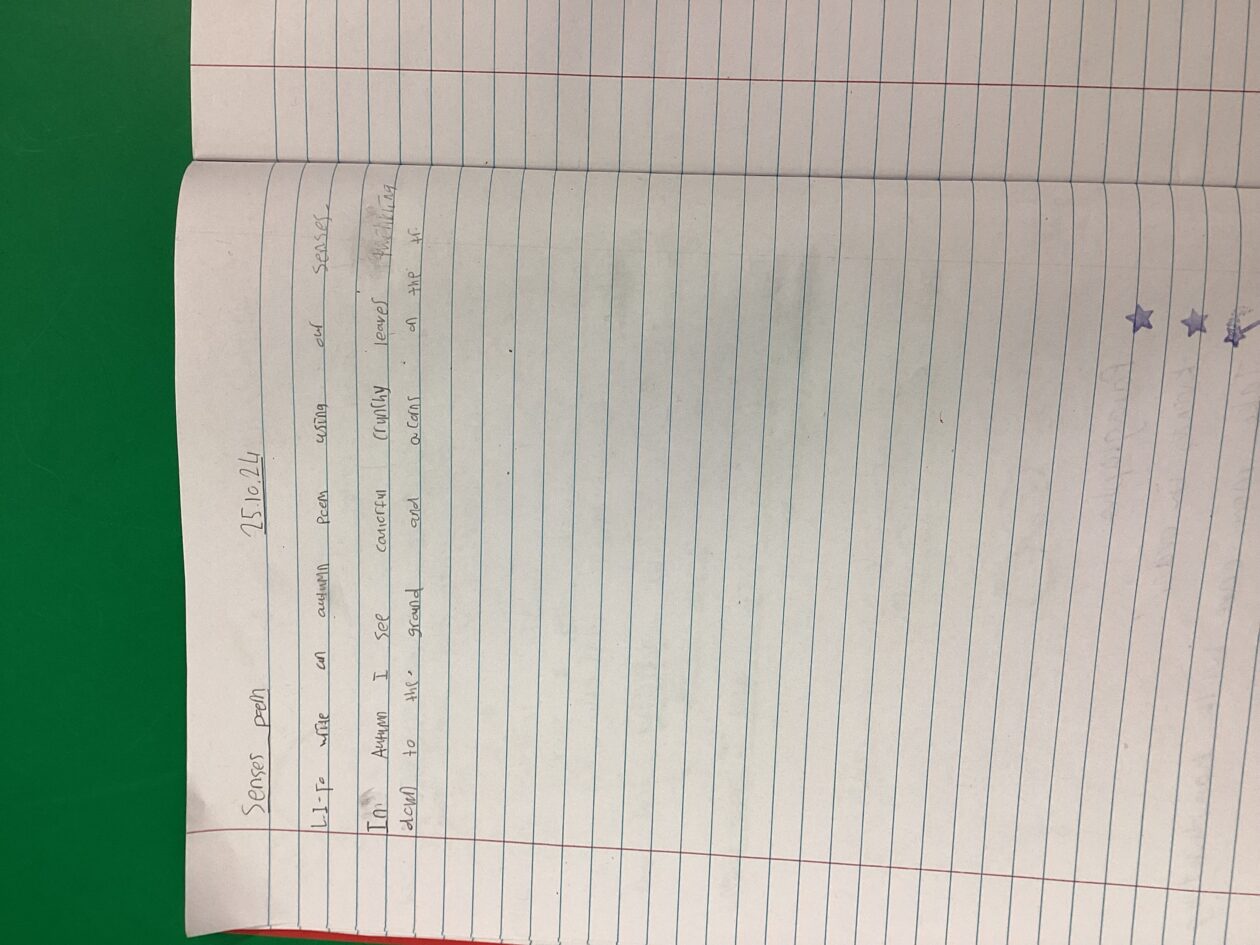 Senses poem 25.10.24
L.I-To write an autumn poem using our senses.
In Autumn I see coulorful crunchy leaves
down to the ground and acorns on the tr